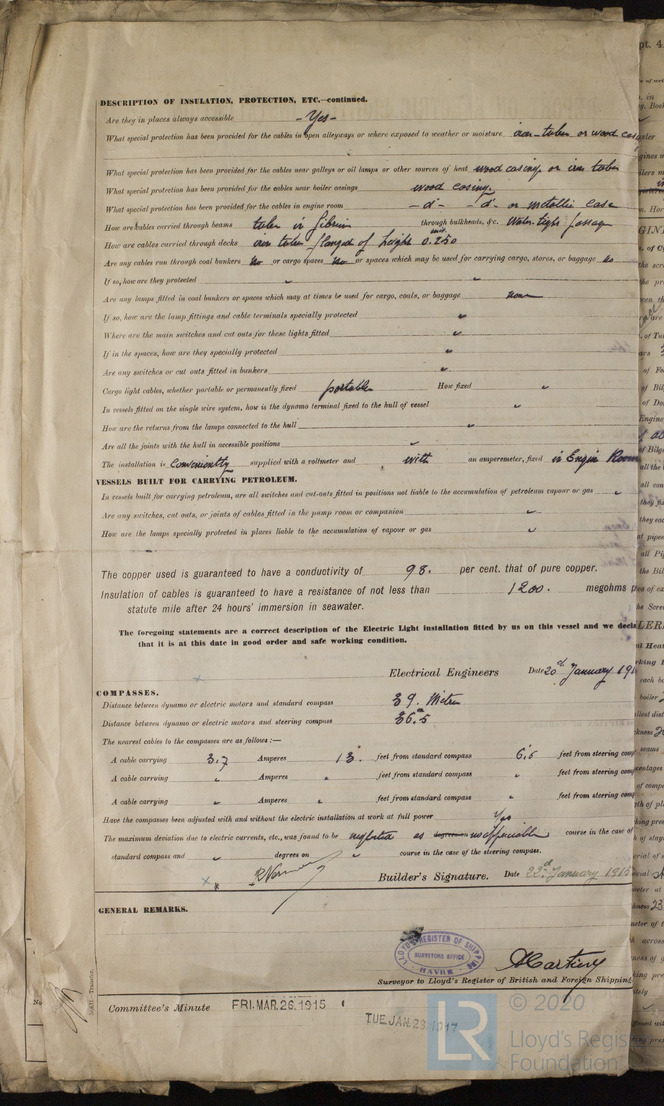 DESCRIPTION OF INSULATION, PROTECTION, ETC.—continued.
Are they in places always accessible - Yes -
What special protection has been provided for the cables in open alleyways or where exposed to weather or moisture iron-tubes or wood
What special protection has been provided for the cables near galleys or oil lamps or other sources of heat wood casing or iron tubes
What special protection has been provided for the cables near boiler casings wood casing.
What special protection has been provided for the cables in engine room -d°- -d°- or metallic case
How are cables carried through beams tubes in fibrine through bulkheads, &c. Water-tight passage
How are cables carried through decks iron tubes flanged of height 0.250
Are any cables run through coal bunkers No or cargo spaces No or spaces which may be used for carrying cargo, stores, or baggage No
If so, how are they protected "
Are any lamps fitted in coal bunkers or spaces which may at times be used for cargo, coals, or baggage none
If so, how are the lamp fittings and cable terminals specially protected "
Where are the main switches and cut outs for these lights fitted "
If in the spaces, how are they specially protected "
Are any switches or cut outs fitted in bunkers "
Cargo light cables, whether portable or permanently fixed portable How fixed "
In vessels fitted on the single wire system, how is the dynamo terminal fixed to the hull of vessel "
How are the returns from the lamps connected to the hull "
Are all the joints with the hull in accessible positions "
The installation is conveniently supplied with a voltmeter and with an amperemeter, fixed in Engin Room
VESSELS BUILT FOR CARRYING PETROLEUM.
In vessels built for carrying petroleum, are all switches and cut-outs fitted in positions not liable to the accumulation of petroleum vapour or gas "
Are any switches, cut outs, or joints of cables fitted in the pump room or companion "
How are the lamps specially protected in places liable to the accumulation of vapour or gas "
The copper used is guaranteed to have a conductivity of 98. per cent. that of pure copper.
Insulation of cables is guaranteed to have a resistance of not less than 1200. megohms
statute mile after 24 hours' immersion in seawater.
The foregoing statements are a correct description of the Electric Light installation fitted by us on this vessel and we
that it is at this date in good order and safe working condition.
Electrical Engineers Date 20th January 191
COMPASSES.
Distance between dynamo or electric motors and standard compass 39. Metres
Distance between dynamo or electric motors and steering compass 36.5
The nearest cables to the compasses are as follows:—
A cable carrying 3.7 Amperes 13. feet from standard compass 6.6 feet from steering
A cable carrying " Amperes " feet from standard compass " feet from steering
A cable carrying " Amperes " feet from standard compass " feet from steering
Have the compasses been adjusted with and without the electric installation at work at full power Yes
The maximum deviation due to electric currents, etc., was found to be neglected as course in the case of
standard compass and " degrees on " course in the case of the steering compass.
Builder's Signature. Date 22d January 1915
GENERAL REMARKS.
LLOYD'S REGISTER OF SHIPPING
SURVEYORS OFFICE
HAVRE
Surveyor to Lloyd's Register of British and Foreign Shipping
Committee's Minute FRI. MAR. 26. 1915
TUE. JAN. 23. 1917
Transfer.
LR
© 2020
Lloyd's Regis
Foundation